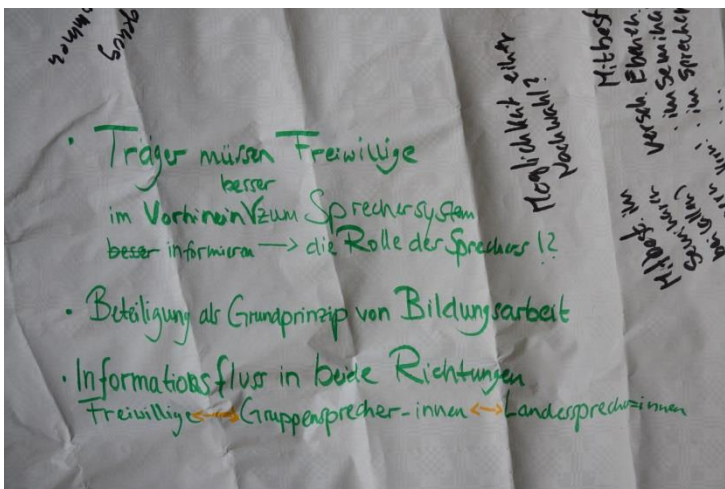 · Träger müssen Freiwillige
besser
im Vorhinein V zum Sprechersystem
besser informieren → die Rolle der Sprechers !?
· Beteiligung als Grundprinzip von Bildungsarbeit
· Informationsfluss in beide Richtungen
Freiwillige ↔ Gruppensprecher-innen ↔ Landessprecher-innen
Möglichkeit einer
Nachwahl?
Mitbest. im
Seminar
versch. Ebenen
· im Seminar
· im Sprecher